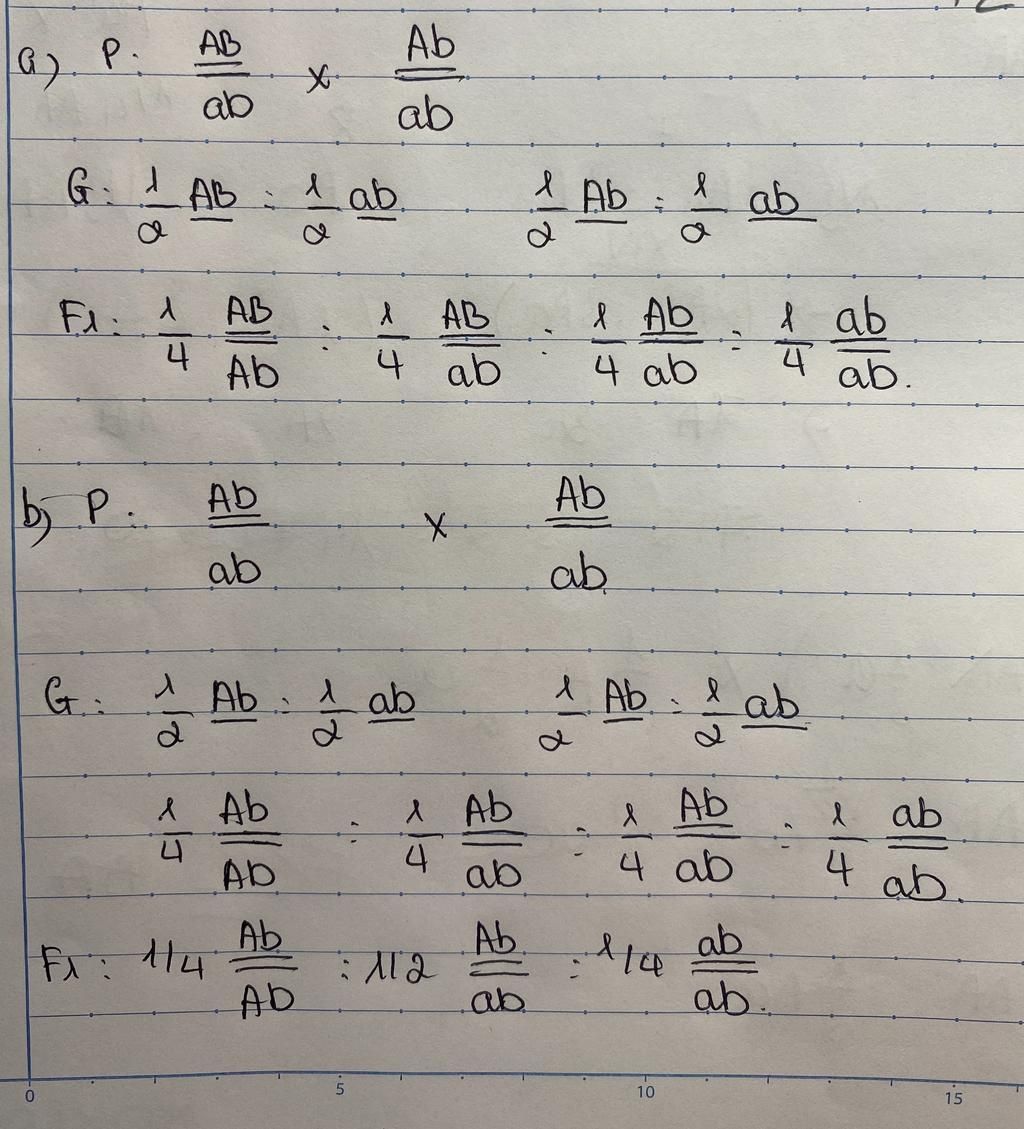 a) P: AB/ab x Ab/ab
G: 1/2 AB : 1/2 ab 1/2 Ab : 1/2 ab
F1: 1/4 AB/Ab : 1/4 AB/ab : 1/4 Ab/ab : 1/4 ab/ab.
b) P: Ab/ab x Ab/ab
G: 1/2 Ab : 1/2 ab 1/2 Ab : 1/2 ab
1/4 Ab/Ab : 1/4 Ab/ab : 1/4 Ab/ab : 1/4 ab/ab.
F1: 1/4 Ab/Ab : 1/2 Ab/ab : 1/4 ab/ab.
0 5 10 15